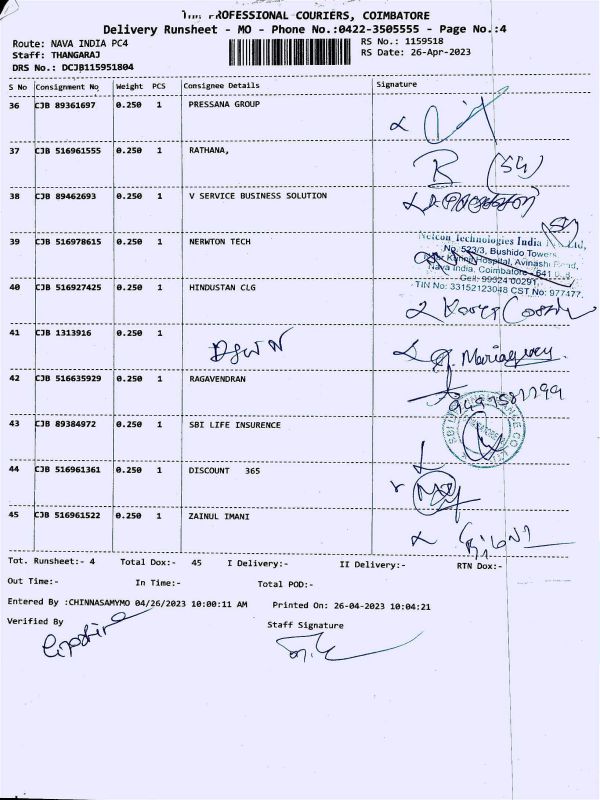 THE PROFESSIONAL COURIERS, COIMBATORE
Delivery Runsheet - MO - Phone No.:0422-3505555 - Page No.:4
Route: NAVA INDIA PC4
RS No.: 1159518
Staff: THANGARAJ
RS Date: 26-Apr-2023
DRS No.: DCJB115951804
S No Consignment No Weight PCS Consignee Details Signature
36 CJB 89361697 0.250 1 PRESSANA GROUP
37 CJB 516961555 0.250 1 RATHANA,
B (54)
38 CJB 89462693 0.250 1 V SERVICE BUSINESS SOLUTION
39 CJB 516978615 0.250 1 NERWTON TECH
Netcon Technologies India Ltd,
No. 523/3, Bushido Towers
Hospital, Avinashi Road,
Nava India, Coimbatore - 641
Cell: 99524 00291,
TIN No: 33152123048 CST No: 977477
40 CJB 516927425 0.250 1 HINDUSTAN CLG
41 CJB 1313916 0.250 1
42 CJB 516635929 0.250 1 RAGAVENDRAN
43 CJB 89384972 0.250 1 SBI LIFE INSURENCE
44 CJB 516961361 0.250 1 DISCOUNT 365
45 CJB 516961522 0.250 1 ZAINUL IMANI
Tot. Runsheet:- 4 Total Dox:- 45 I Delivery:- II Delivery:- RTN Dox:-
Out Time:- In Time:- Total POD:-
Entered By :CHINNASAMYMO 04/26/2023 10:00:11 AM Printed On: 26-04-2023 10:04:21
Verified By Staff Signature